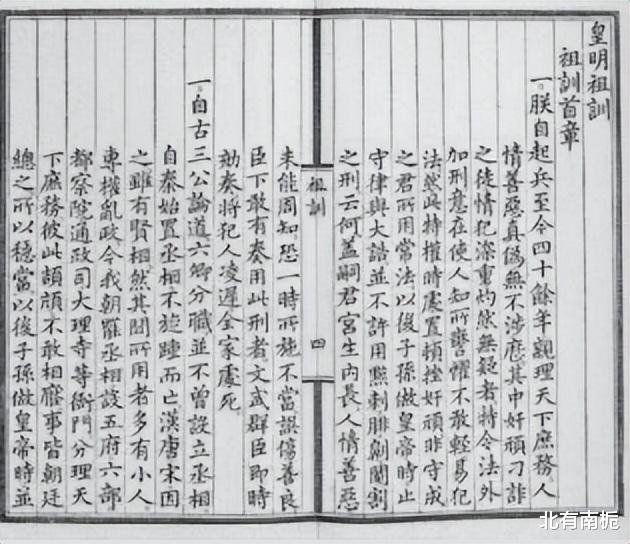 皇明祖訓
祖訓首章
一朕自起兵至今四十餘年親理天下庶務人
情善惡真偽無不涉歷其中奸頑刁詐
之徒情犯深重灼然無疑者特令法外
加刑意在使人知所警懼不敢輕易犯
法然此特權時處置頓挫奸頑非守成
之君所用常法以後子孫做皇帝時止
守律與大誥並不許用黥刺腓劓閹割
之刑云何蓋嗣君宮生內長人情善惡
未能周知恐一時所施不當誤傷善良
臣下敢有奏用此刑者文武群臣即時
劾奏將犯人凌遲全家處死
一自古三公論道六卿分職並不曾設立丞相
自秦始置丞相不旋踵而亡漢唐宋因
之雖有賢相然其間所用者多有小人
專權亂政今我朝罷丞相設五府六部
都察院通政司大理寺等衙門分理天
下庶務彼此頡頏不敢相壓事皆朝廷
總之所以穩當以後子孫做皇帝時並
祖訓
四
北有南栀